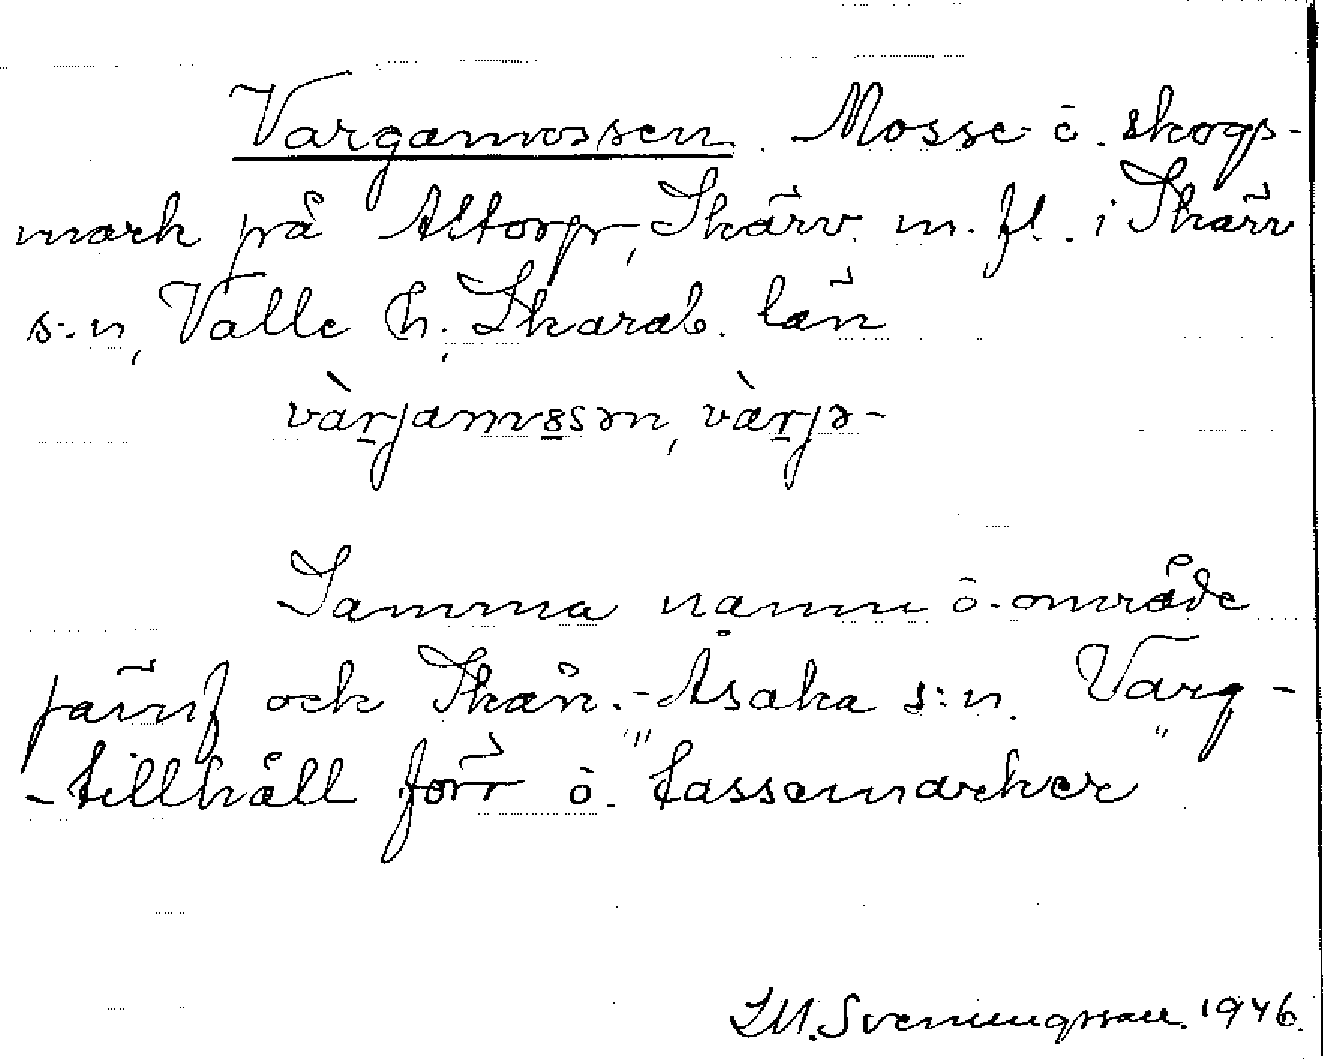 Vargamossen. Mosse o. skogs-
mark på Altorp, Skärv m. fl. i Skärv
s:n, Valle h., Skarab. län
vàrjamosən, vàrjə-
Samma namn o. område
jämf och Skån.-Åsaka s:n. Varg-
-tillhåll förr o. "tassemarker"
Sveningsson. 1946.